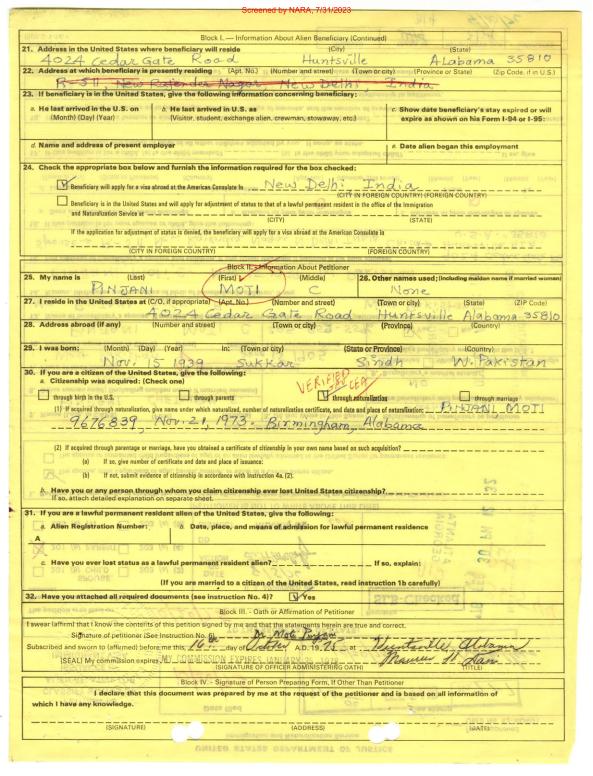 Screened by NARA, 7/31/2023
Block I. — Information About Alien Beneficiary (Continued)
21. Address in the United States where beneficiary will reside (City) (State)
4024 Cedar Gate Road Huntsville Alabama 35810
22. Address at which beneficiary is presently residing (Apt. No.) (Number and street) (Town or city) (Province or State) (Zip Code, if in U.S.)
R-511, New Rajender Nagar, New Delhi, India
23. If beneficiary is in United States, give the following information concerning beneficiary:
a. He last arrived in the U.S. on (Month) (Day) (Year)
b. He last arrived in U.S. as (Visitor, student, exchange alien, crewman, stowaway, etc.)
c. Show date beneficiary's stay expired or will expire as shown on his Form I-94 or I-95:
d. Name and address of present employer
e. Date alien began this employment
24. Check the appropriate box below and furnish the information required for the box checked:
Beneficiary will apply for a visa abroad at the American Consulate in New Delhi India
(CITY IN FOREIGN COUNTRY) (FOREIGN COUNTRY)
Beneficiary is in the United States and will apply for adjustment of status to that of a lawful permanent resident in the office of the Immigration
and Naturalization Service at
(CITY) (STATE)
If the application for adjustment of status is denied, the beneficiary will apply for a visa abroad at the American Consulate in
(CITY IN FOREIGN COUNTRY) (FOREIGN COUNTRY)
Block II. - Information About Petitioner
25. My name is (Last) (First) (Middle)
PINJANI MOTI C
26. Other names used: (including maiden name if married woman)
None
27. I reside in the United States at (C/O, if appropriate) (Apt. No.) (Number and street) (Town or city) (State) (ZIP Code)
4024 Cedar Gate Road Huntsville Alabama 35810
28. Address abroad (if any) (Number and street) (Town or city) (Province) (Country)
29. I was born: (Month) (Day) (Year) In: (Town or city) (State or Province) (Country)
Nov. 15 1939 Sukkar Sindh W. Pakistan
30. If you are a citizen of the United States, give the following:
a. Citizenship was acquired: (Check one)
VERIFIED
through birth in the U.S. through parents through naturalization through marriage
(1) If acquired through naturalization, give name under which naturalized, number of naturalization certificate, and date and place of naturalization: PINJANI, MOTI
9676839 Nov. 21, 1973. Birmingham, Alabama
(2) If acquired through parentage or marriage, have you obtained a certificate of citizenship in your own name based on such acquisition?
(a) If so, give number of certificate and date and place of issuance:
(b) If not, submit evidence of citizenship in accordance with Instruction 4a. (2).
b. Have you or any person through whom you claim citizenship ever lost United States citizenship?
If so, attach detailed explanation on separate sheet.
31. If you are a lawful permanent resident alien of the United States, give the following:
a. Alien Registration Number: b. Date, place, and means of admission for lawful permanent residence
A
c. Have you ever lost status as a lawful permanent resident alien? If so, explain:
(If you are married to a citizen of the United States, read instruction 1b carefully)
32. Have you attached all required documents (see instruction No. 4)? Yes
Block III. - Oath or Affirmation of Petitioner
I swear (affirm) that I know the contents of this petition signed by me and that the statements herein are true and correct.
Signature of petitioner (See Instruction No. 6) Dr Moti Pinjani
Subscribed and sworn to (affirmed) before me this 16th day of October A.D. 19 at Huntsville Alabama
(SEAL) My commission expires MY COMMISSION EXPIRES
(SIGNATURE OF OFFICER ADMINISTERING OATH) (TITLE)
Block IV. - Signature of Person Preparing Form, If Other Than Petitioner
I declare that this document was prepared by me at the request of the petitioner and is based on all information of
which I have any knowledge.
(SIGNATURE) (ADDRESS) (DATE)